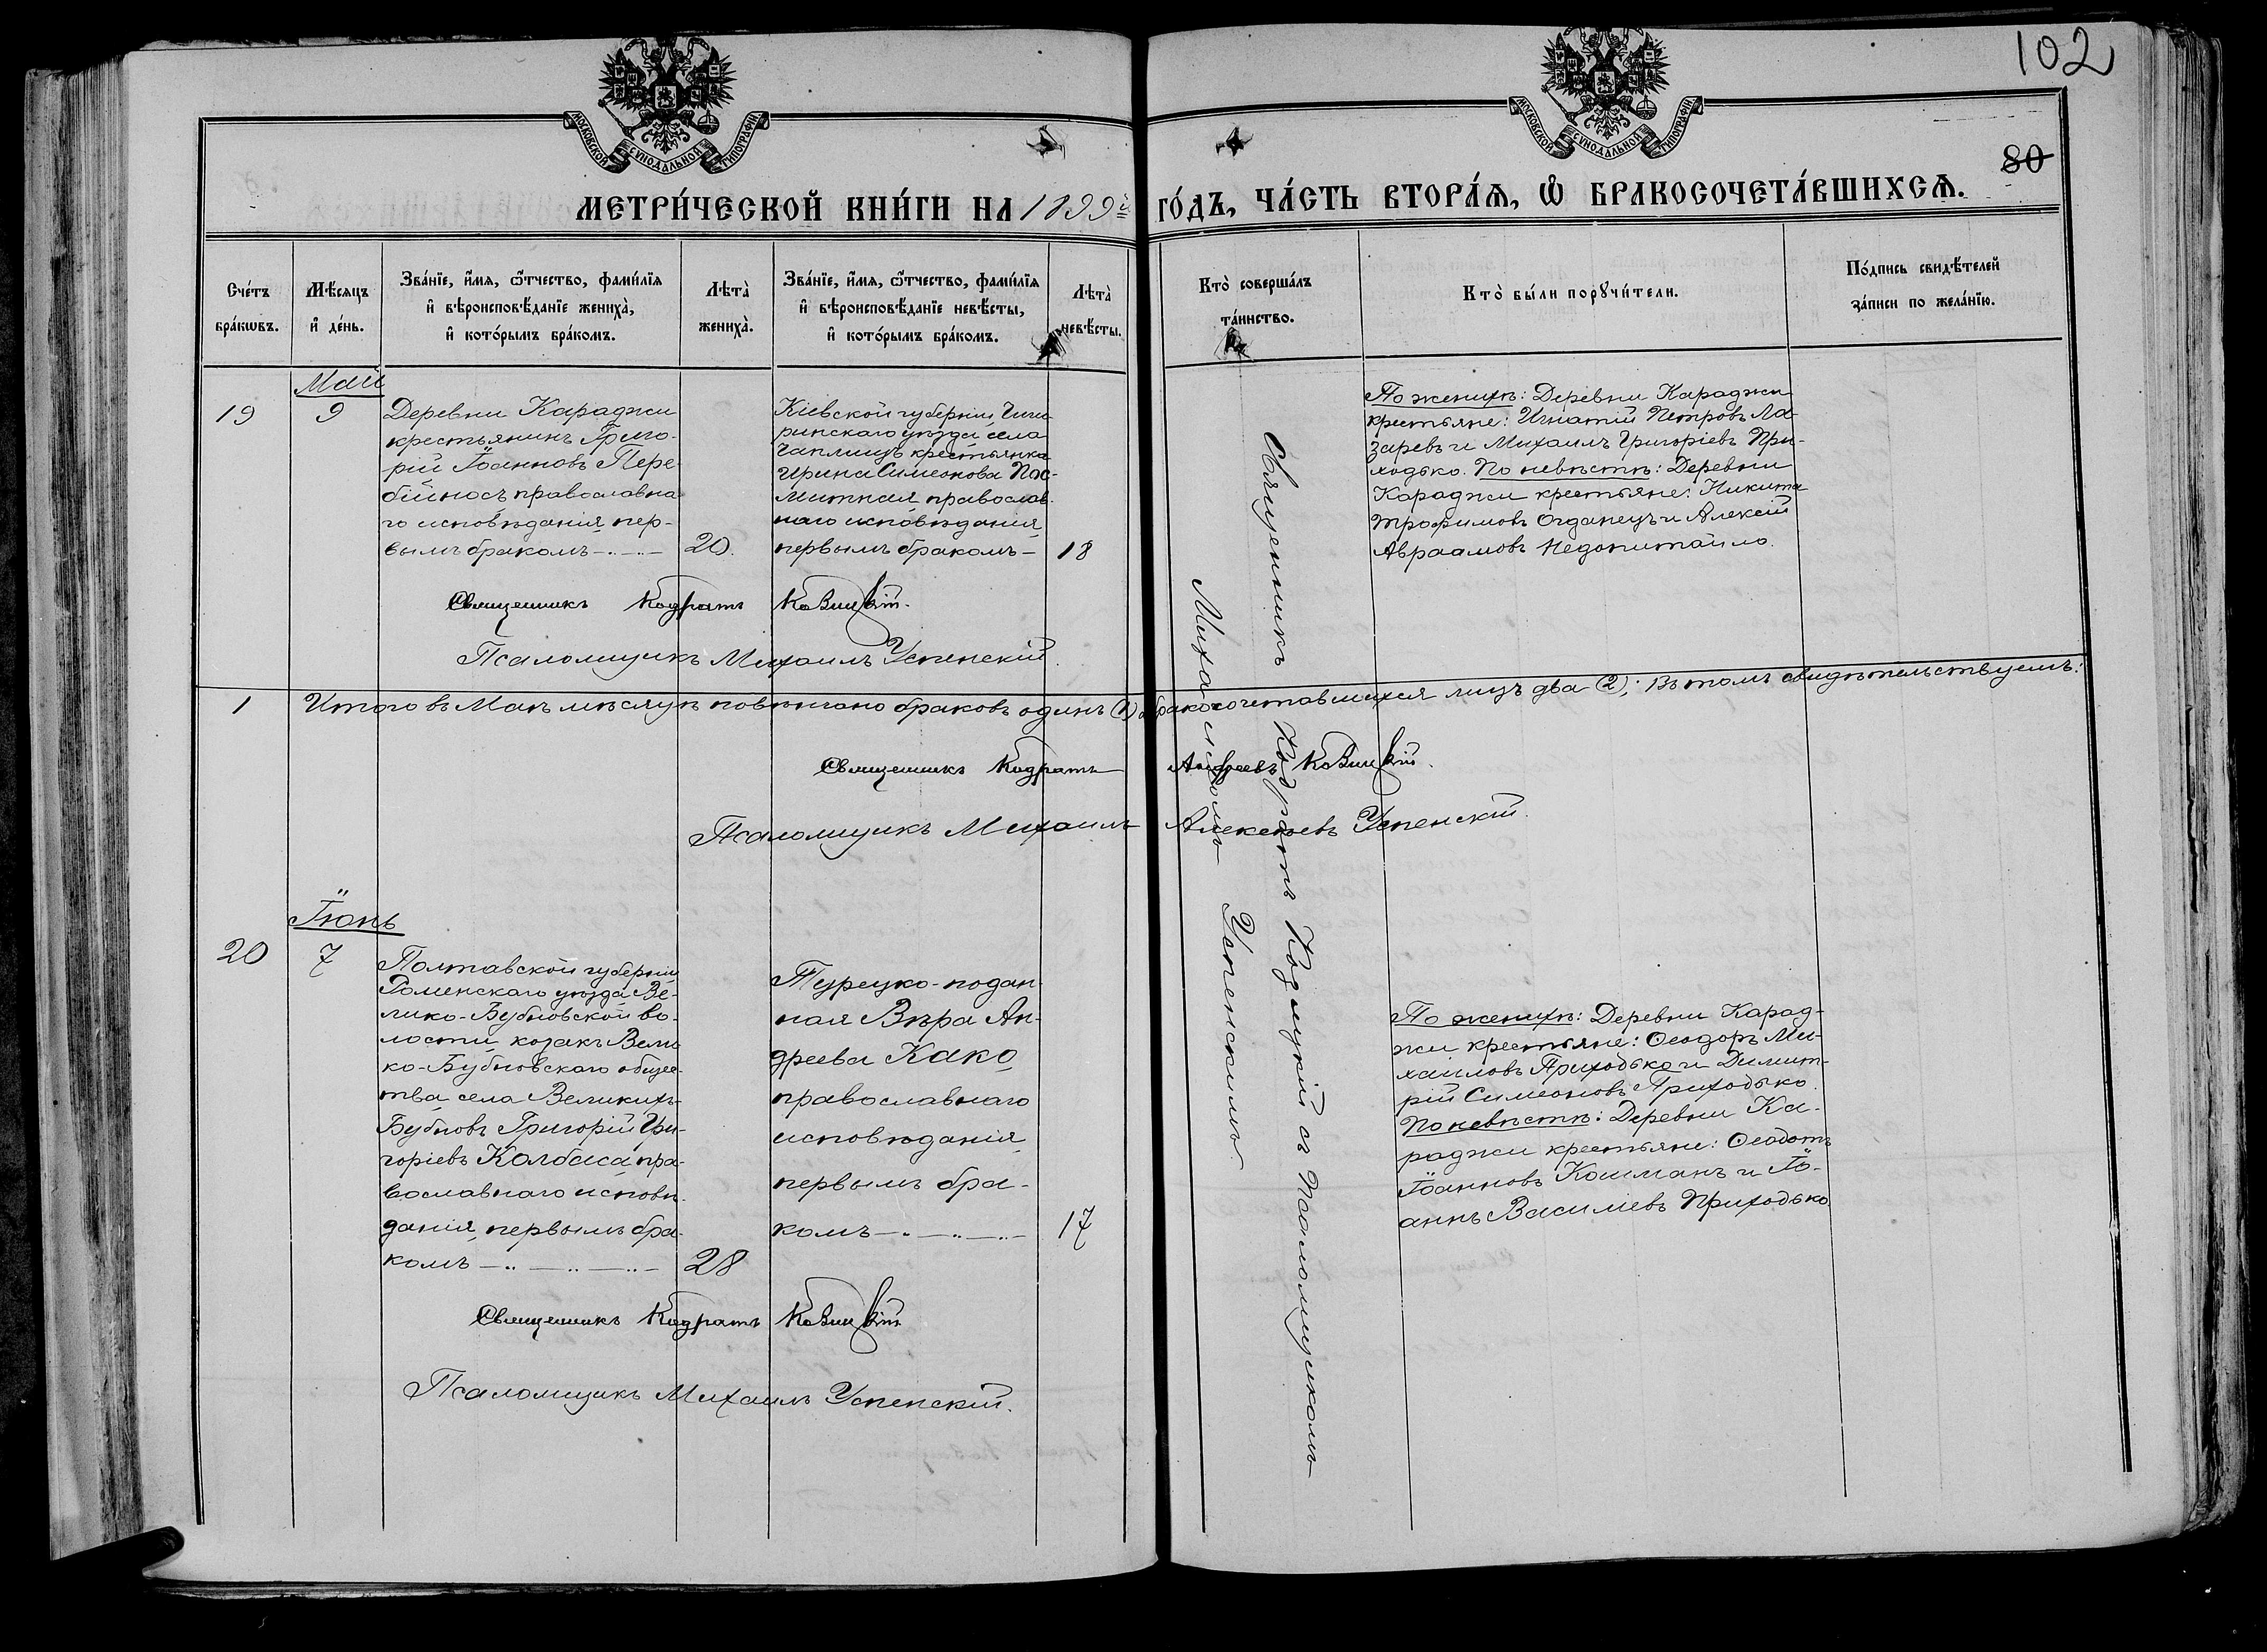 102
80
МОСКОВСКОЙ СѴНОДАЛЬНОЙ ТИПОГРАФІИ
МОСКОВСКОЙ СѴНОДАЛЬНОЙ ТИПОГРАФІИ
МЕТРИ́ЧЕСКОЙ КНИ́ГИ НА 1899й ГО́ДЪ, ЧА́СТЬ ВТОРА́Я, Ѡ БРАКОСОЧЕТА́ВШИХСЯ.
Сче́тъ
бра́кѡвъ.
Мѣ́сяцъ
и҆ де́нь.
Зва́нїе, и҆́мя, ѻ҆́тчество, фами́лїя
и҆ вѣроисповѣ́данїе жениха̀,
и҆ кото́рымъ бра́комъ.
Лѣта̀
жениха̀.
Зва́нїе, и҆́мя, ѻ҆́тчество, фами́лїя
и҆ вѣроисповѣ́данїе невѣ́сты,
и҆ кото́рымъ бра́комъ.
Лѣта̀
невѣ́сты.
Кто̀ соверша́лъ
та́инство.
Кто̀ бы́ли порꙋчи́тели.
По́дпись свидѣ́телей
за́писи по жела́нїю.
Май
19
9
Деревни Караджи
крестьянинъ Григо-
рій Іоанновъ Пере-
бійносъ православна-
го исповѣданія пер-
вымъ бракомъ
20.
Кіевской губерніи Чиги-
ринскаго уѣзда села
крестьянка
Ирина Симеонова
православ-
наго исповѣданія
первымъ бракомъ
18
По женихѣ: Деревни Караджи
крестьяне: Игнатій Петровъ Ла-
заревъ и Михаилъ Григоріевъ При-
ходько. По невѣстѣ: Деревни
Караджи крестьяне: Никита
Трофимовъ и Алексій
Авраамовъ Недопитайло.
Священникъ Кодратъ
Псаломщикъ Михаилъ Успенскій.
Священникъ Кодратъ съ Псаломщикомъ
Михаиломъ Успенскимъ
1
Итого въ Маѣ мѣсяцѣ повѣнчано браковъ одинъ (1) бракосочетавшихся лицъ два (2); Въ томъ свидѣтельствуемъ:
Священникъ Кодратъ Андреевъ
Псаломщикъ Михаилъ Алексѣевъ Успенскій.
Іюнь
20
7
Полтавской губерніи
Роменскаго уѣзда Ве-
лико-Бубновской во-
лости козакъ Вели-
ко-Бубновскаго общес-
тва села Великихъ
Бубновъ Григорій Гри-
горіевъ Колбаса пра-
вославнаго исповѣ-
данія первымъ бра-
комъ
28
Турецко-подан-
ная Вѣра Ан-
дреева Како
православнаго
исповѣданія
первымъ бра-
комъ
17
По женихѣ: Деревни Карад-
жи крестьяне: Ѳеодоръ Ми-
хаиловъ Приходько и Димит-
рій Симеоновъ Приходько.
По невѣстѣ: Деревни Ка-
раджи крестьяне: Ѳеодотъ
Іоанновъ Кошманъ и Іо-
аннъ Василіевъ Приходько
Священникъ Кодратъ
Псаломщикъ Михаилъ Успенскій.